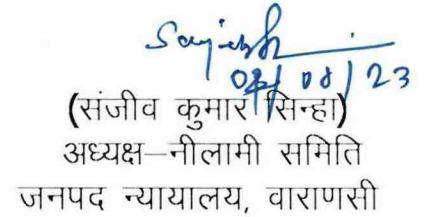 02/08/23
(संजीव कुमार सिन्हा)
अध्यक्ष–नीलामी समिति
जनपद न्यायालय, वाराणसी